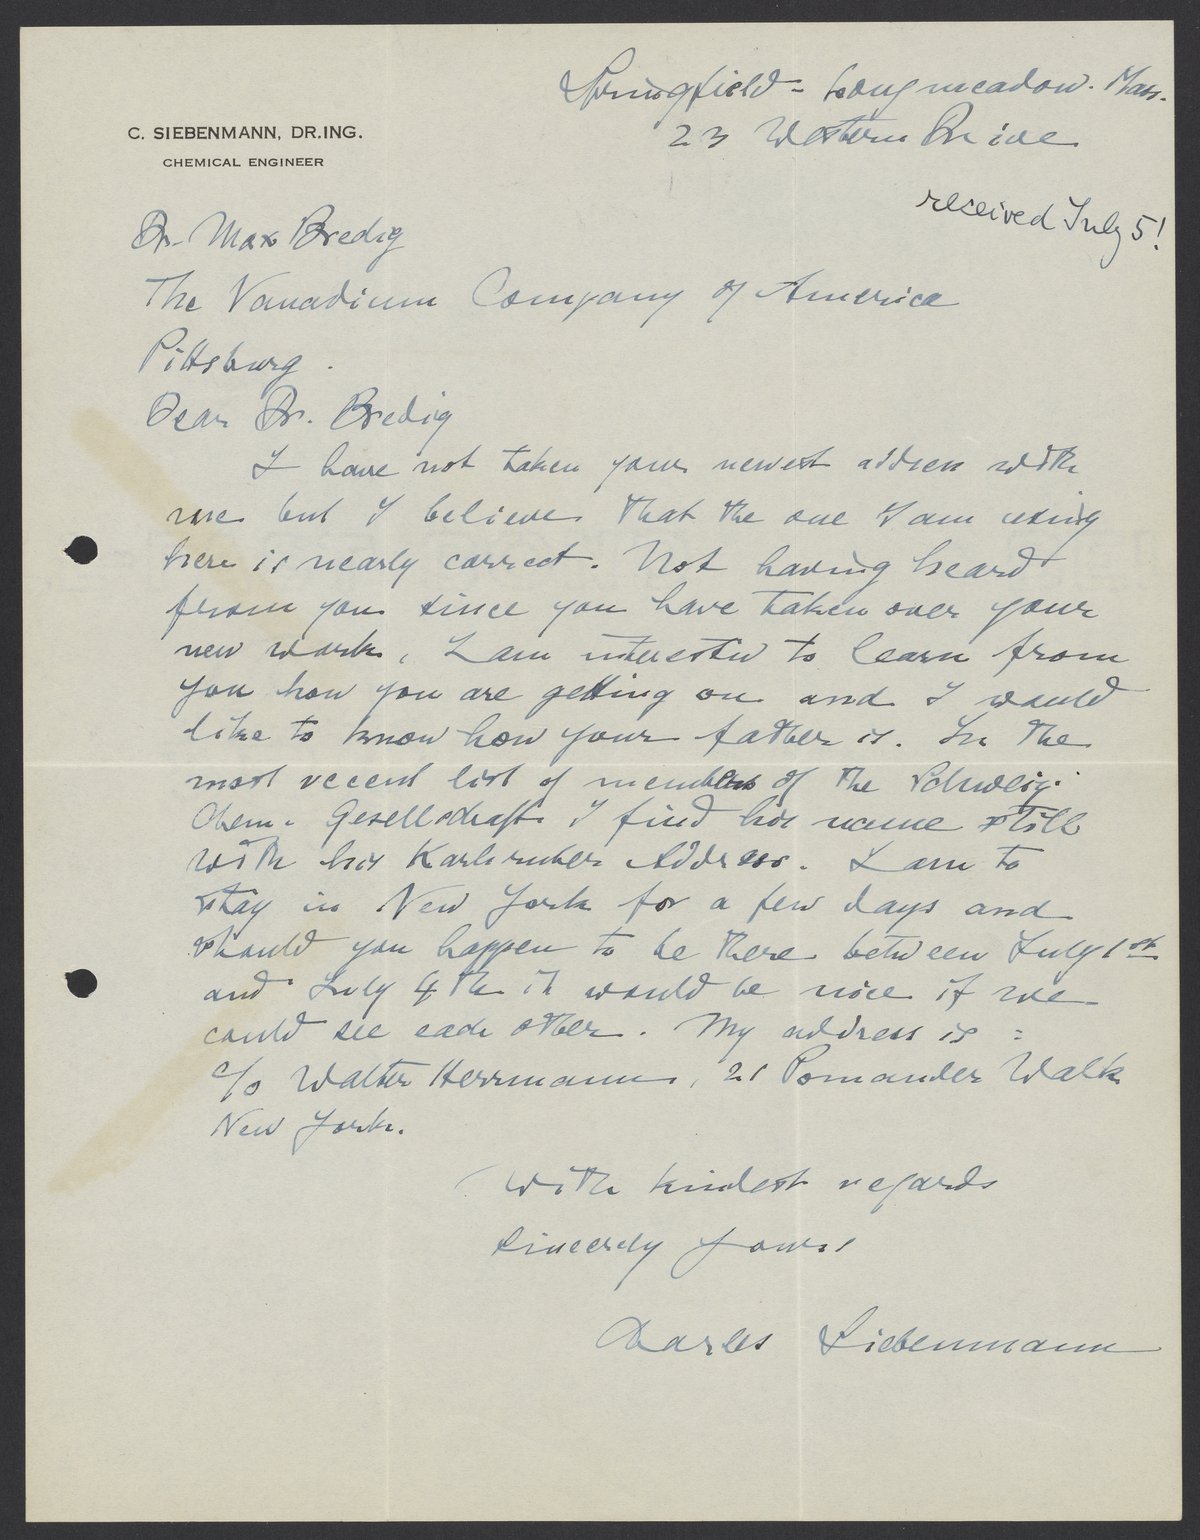 Springfield - Longmeadow. Mass.
23 Western Drive
C. SIEBENMANN, DR.ING.
CHEMICAL ENGINEER
received July 5!
Dr. Max Bredig
The Vanadium Company of America
Pittsburg.
Dear Dr. Bredig
I have not taken your newest address with
me but I believe that the one I am using
here is nearly correct. Not having heard
from you since you have taken over your
new work, I am interested to learn from
you how you are getting on and I would
like to know how your father is. In the
most recent list of members of the Schweiz.
Chem. Gesellschaft I find his name still
with his Karlsruher Address. I am to
stay in New York for a few days and
should you happen to be there between July 1st
and July 4th it would be nice if we
could see each other. My address is :
c/o Walter Herrmann, 21 Pomander Walk
New York.
With kindest regards
Sincerely Yours
Charles Siebenmann